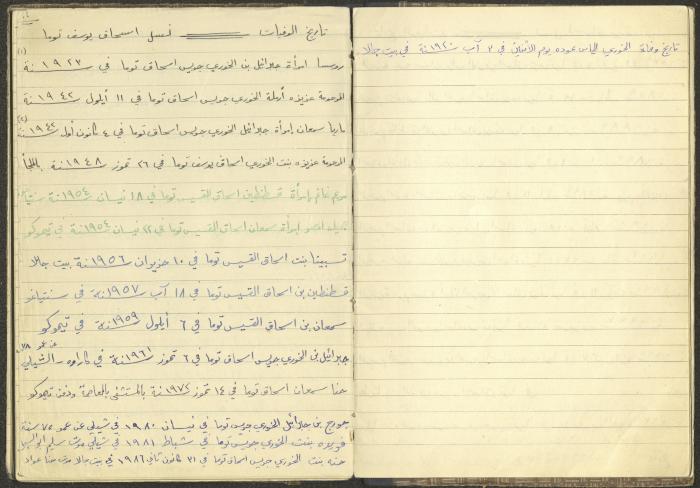 تاريخ الوفيات نسل اسحاق يوسف توما
(١) روسا امرأة جبرائيل بن الخوري جريس اسحاق توما في سنة ١٩٢٧
المرحومة عزيزه أرملة الخوري جريس اسحاق توما في ١١ أيلول سنة ١٩٤٢
(٢) ماريا سمعان امرأة جبرائيل الخوري جريس اسحاق توما في ٤ كانون أول سنة ١٩٤٢
المرحومة عزيزه بنت الخوري اسحاق يوسف توما في ٢٦ تموز سنة ١٩٤٨
مريم غانم امرأة قسطنطين اسحاق القسيس توما في ١٨ نيسان سنة ١٩٥٤
امرأة سمعان اسحاق القسيس توما في ٢٢ نيسان سنة ١٩٥٤ في تيموكو
بنت اسحاق القسيس توما في ١٠ حزيران سنة ١٩٥٦ بيت جالا
قسطنطين بن اسحاق القسيس توما في ١٨ آب سنة ١٩٥٧ في سنتياغو
سمعان بن اسحاق القسيس توما في ٦ أيلول سنة ١٩٥٩ في تيموكو
جبرائيل بن الخوري جريس اسحاق توما في ٦ تموز سنة ١٩٦١ في - الشيلي
عن عمر ٧٨
حنا سمعان اسحاق توما في ١٤ تموز سنة ١٩٧٢ بالمستشفى بالعاصمة ودفن تيموكو
جورج بن جبرائيل الخوري جريس توما في نيسان ١٩٨٠ في شيلي عن عمر ٧٥ سنة
فريده بنت الخوري جريس توما في شباط ١٩٨١ في شيلي
حنه بنت الخوري جريس اسحاق توما في ٣١ كانون ثاني ١٩٨٦ في بيت جالا حنا عواد
تاريخ وفاة الخوري الياس عوده يوم الاثنين في ٢ آب سنة ١٩٢٠ في بيت جالا